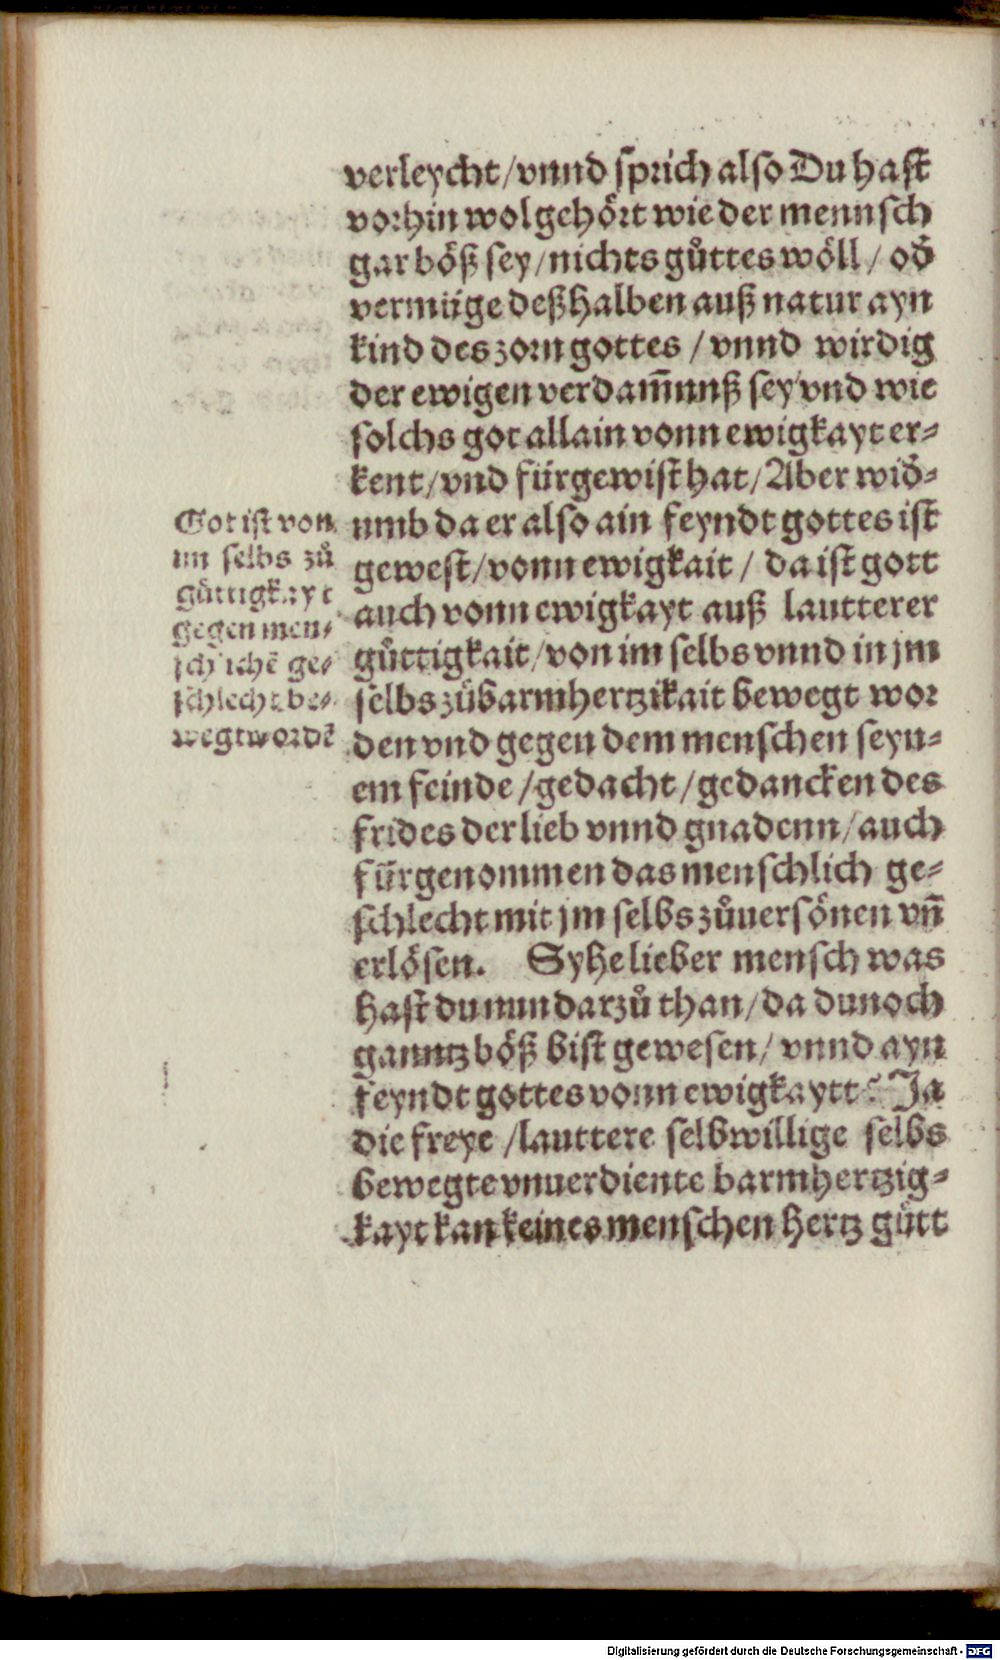 verleycht/vnnd sprich also Du hast
vorhin wol gehört wie der mennsch
gar böß sey/nichts gůttes wöll/ od̄
vermüge deßhalben auß natur ayn
kind des zorn gottes /vnnd wirdig
der ewigen verdam̄nuß sey vnd wie
solchs got allain vonn ewigkayt er-
kent/vnd fürgewist hat/Aber wid̄-
umb da er also ain feyndt gottes ist
gewest/vonn ewigkait / da ist gott
auch vonn ewigkayt auß lautterer
gůttigkait/von im selbs vnnd in jm
selbs zůbarmhertzikait bewegt wor
den vnd gegen dem menschen seyn-
em feinde /gedacht/gedancken des
frides der lieb vnnd gnadenn/auch
fürgenommen das menschlich ge-
schlecht mit jm selbs zůuersönen vn̄
erlösen. Syhe lieber mensch was
hast du nun darzů than/da du noch
ganntz böß bist gewesen/ vnnd ayn
feyndt gottes vonn ewigkaytt? Ja
die freye /lauttere selbwillige selbs
bewegte vnuerdiente barmhertzig-
kayt kan keines menschen hertz gůtt
Got ist von
im selbs zů
gůttigkayt
gegen men-
schlichē ge-
schlecht be-
wegt wordē
Digitalisierung gefördert durch die Deutsche Forschungsgemeinschaft - DFG